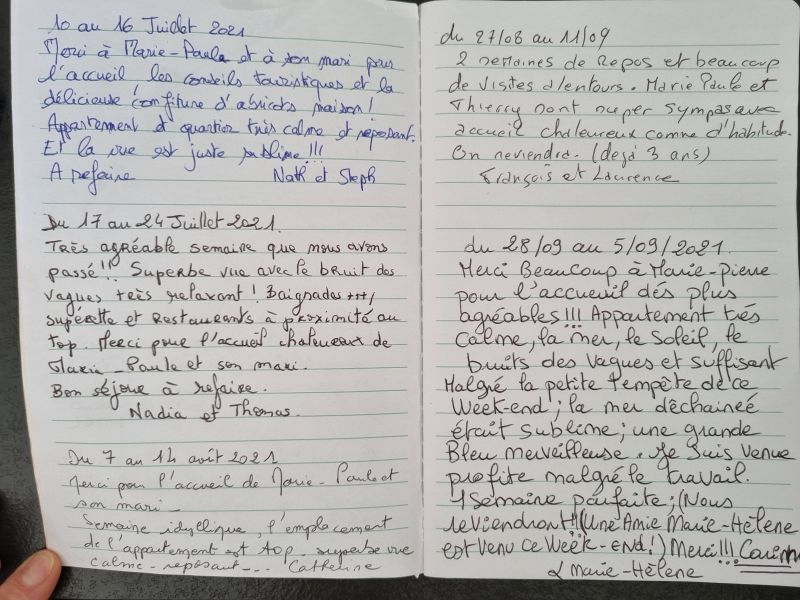 10 au 16 Juillet 2021
Merci à Marie-Paula et à son mari pour
l'accueil les conseils touristiques et la
délicieuse confiture d'abricots maison!
Appartement et quartier très calme et reposant.
Et la vue est juste sublime!!!
A refaire Nath et Steph
Du 17 au 24 Juillet 2021.
Très agréable semaine que nous avons
passé!! Superbe vue avec le bruit des
vagues très relaxant! Baignades +++,
supérette et Restaurants à proximité au
top. Merci pour l'accueil chaleureux de
Marie-Paule et son mari.
Bon séjour à refaire.
Nadia et Thomas.
Du 7 au 14 août 2021
Merci pour l'accueil de Marie-Paule et
son mari.
Semaine idyllique, l'emplacement
de l'appartement est top. superbe vue
calme-reposant... Catherine
du 27/08 au 11/09
2 semaines de Repos et beaucoup
de visites alentours. Marie Paule et
Thierry sont super sympas avec
accueil chaleureux comme d'habitude.
On reviendra. (dejà 3 ans)
François et Laurence
du 28/09 au 5/09/2021.
Merci Beaucoup à Marie-pierre
pour l'accueuil dés plus
agréables!!! Appartement trés
Calme, la mer, le Soleil, le
bruits des vagues et suffisent
Malgré la petite tempête de ce
Week-end; la mer dêchaineé
était sublime; une grande
Bleu merveilleuse. Je Suis venue
profite malgré le travail.
1 Semaine parfaite; (Nous
reviendront!!(Une Amie Marie-Hélène
est venu ce Week-END!) Merci!!!
& Marie-Hélène